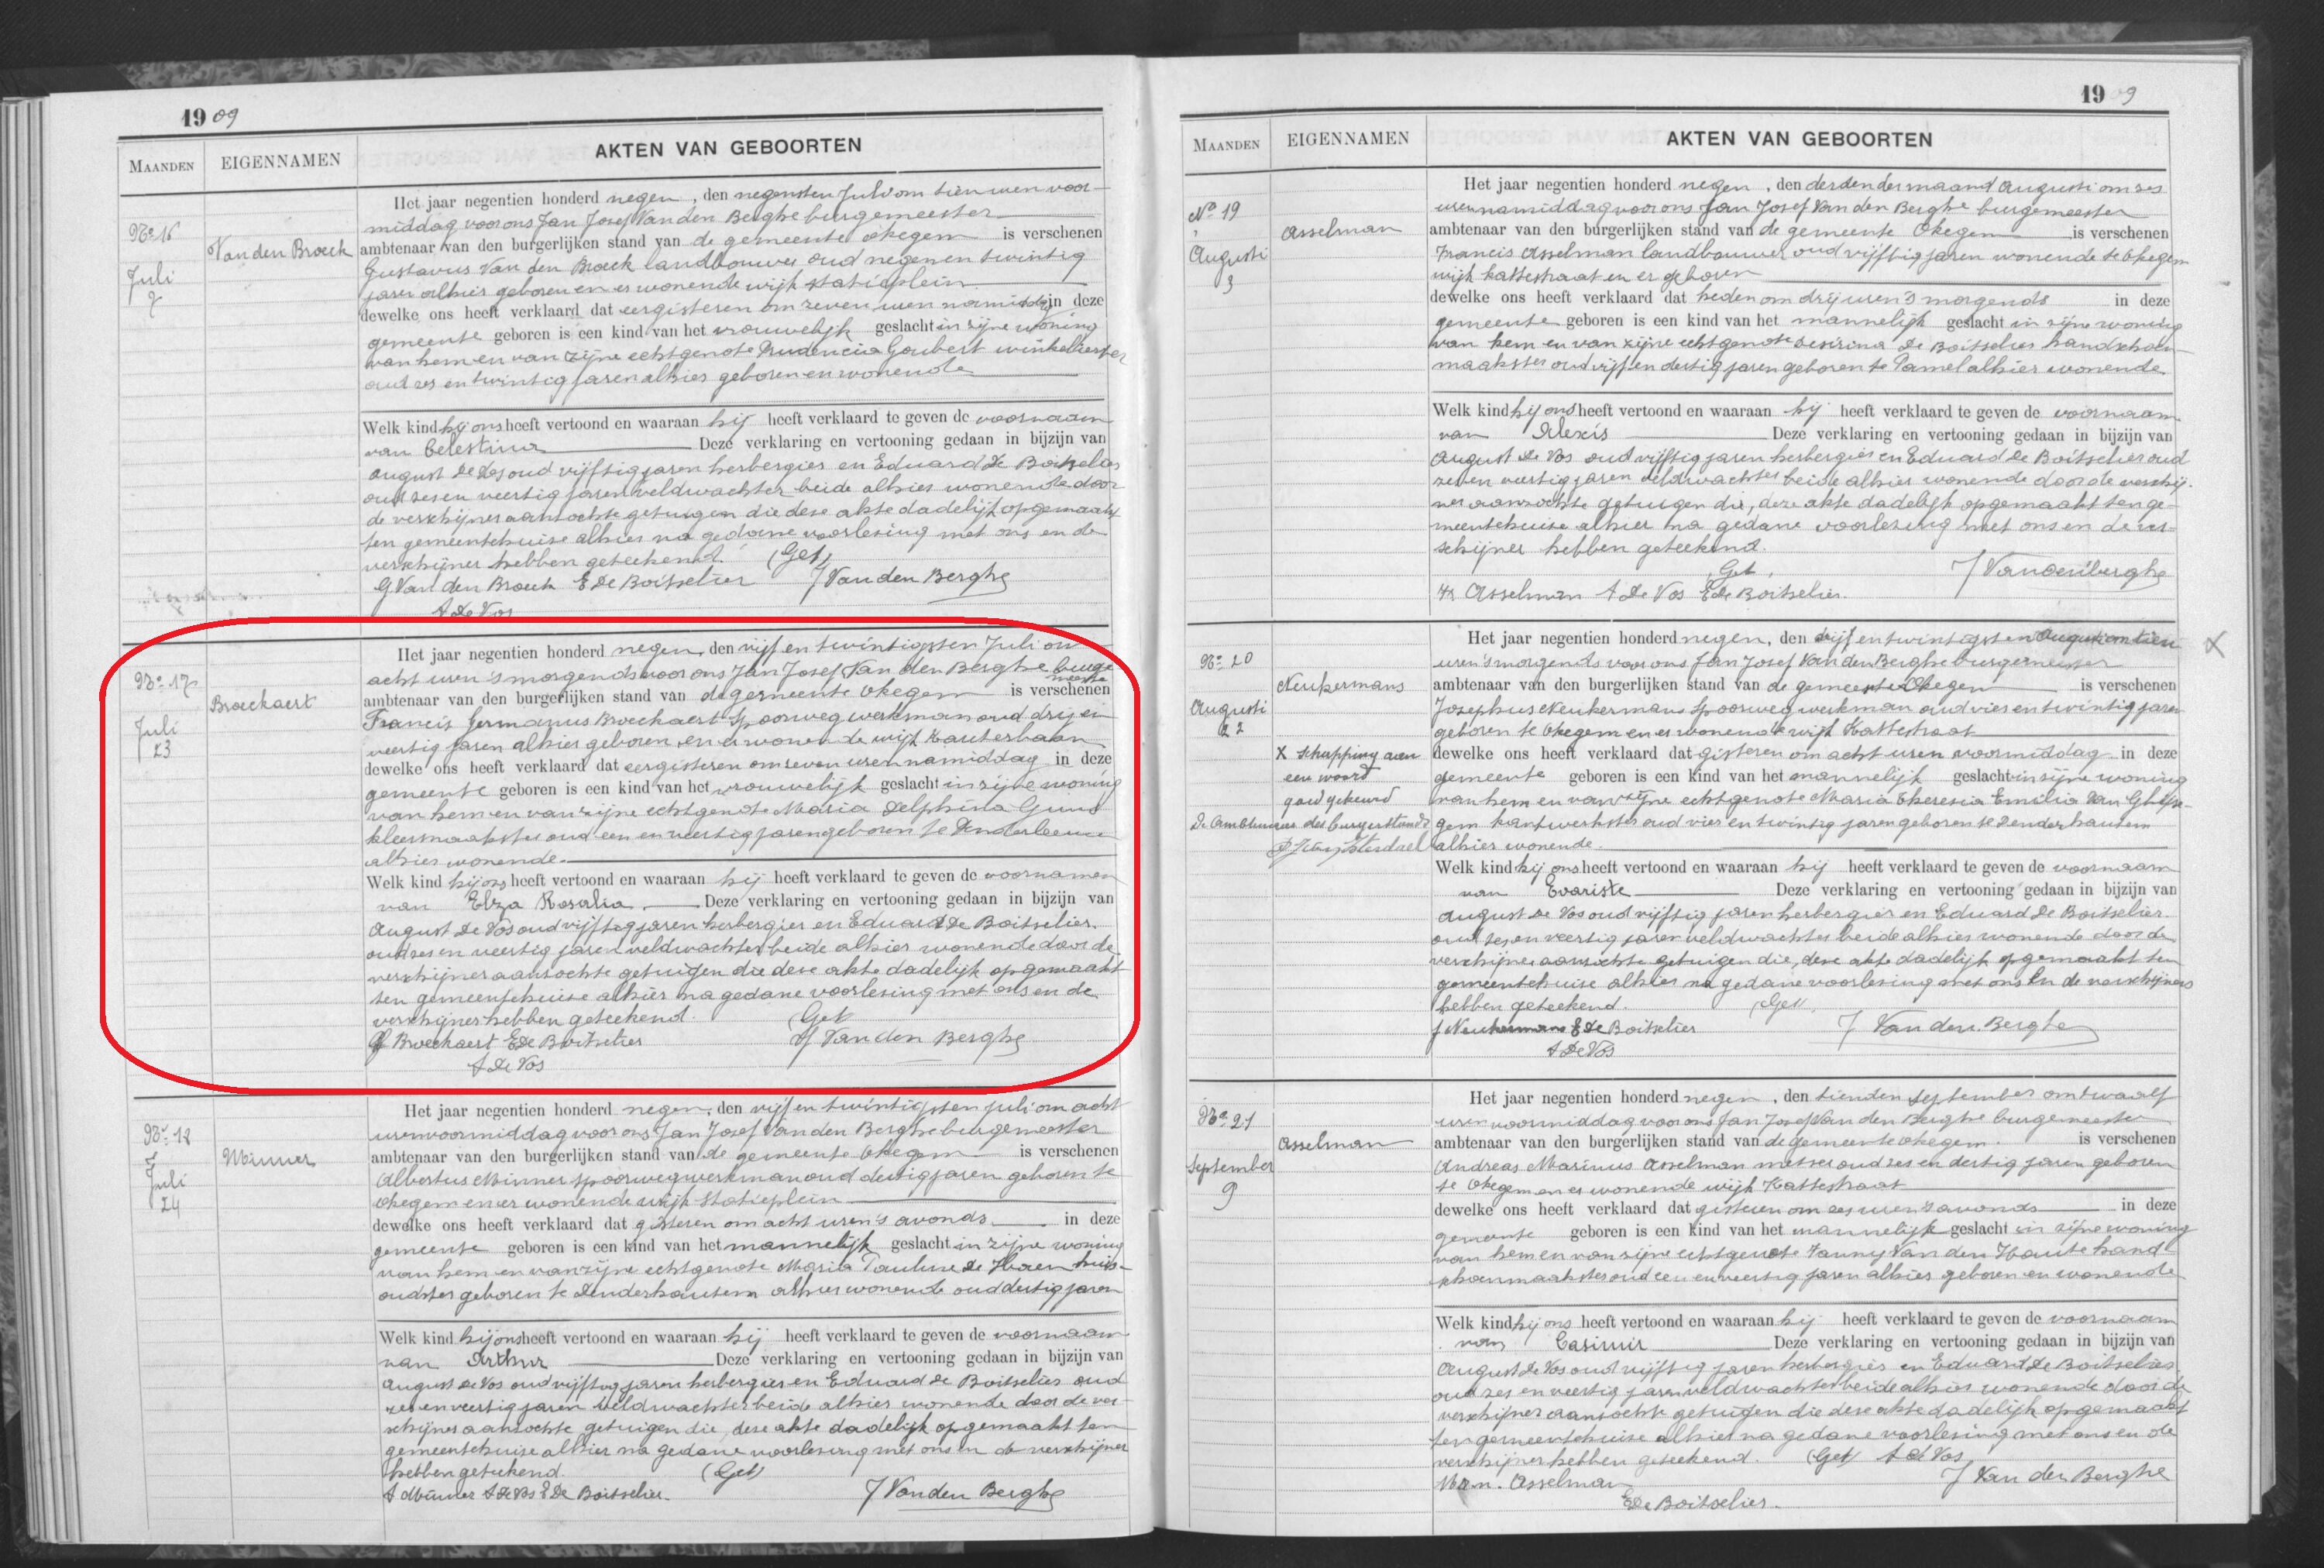 1909
MAANDEN
EIGENNAMEN
AKTEN VAN GEBOORTEN
No 16
Juli
7
Van den Broeck
Het jaar negentien honderd negen, den negensten Juli om tien uren voor-
middag voor ons Jan Josef Van den Berghe burgemeester
ambtenaar van den burgerlijken stand van de gemeente Okegem is verschenen
Gustavus Van den Broeck landbouwer oud negen en twintig
jaren alhier geboren en er wonende wijk statieplein
dewelke ons heeft verklaard dat eergisteren om zeven uren namiddag in deze
gemeente geboren is een kind van het vrouwelijk geslacht in zijne woning
van hem en van zijne echtgenote Prudencia Goubert winkelierster
oud zes en twintig jaren alhier geboren en wonende
Welk kind hij ons heeft vertoond en waaraan hij heeft verklaard te geven de voornaam
van Celestina Deze verklaring en vertooning gedaan in bijzijn van
August De Vos oud vijftig jaren herbergier en Eduard De Boitselier
oud zes en veertig jaren veldwachter beide alhier wonende door
de verschijner aanzochte getuigen die deze akte dadelijk opgemaakt
ten gemeentehuize alhier na gedane voorlezing met ons en de
verschijner hebben geteekend. (Get)
G Van den Broeck E De Boitselier J Van den Berghe
A De Vos
No 17
Juli
23
Broeckaert
Het jaar negentien honderd negen, den vijf en twintigsten Juli om
acht uren 's morgends voor ons Jan Josef Van den Berghe burge
meester
ambtenaar van den burgerlijken stand van de gemeente Okegem is verschenen
Francis Germanus Broeckaert spoorwegwerkman oud drij en
veertig jaren alhier geboren en er wonende wijk Kauterbaan
dewelke ons heeft verklaard dat eergisteren om zeven uren namiddag in deze
gemeente geboren is een kind van het vrouwelijk geslacht in zijne woning
van hem en van zijne echtgenote Maria Delphina Guns
kleermaakster oud een en veertig jaren geboren te Denderleeuw
alhier wonende.
Welk kind hij ons heeft vertoond en waaraan hij heeft verklaard te geven de voornamen
van Elza Rosalia. Deze verklaring en vertooning gedaan in bijzijn van
August De Vos oud vijftig jaren herbergier en Eduard De Boitselier.
oud zes en veertig jaren veldwachter beide alhier wonende door de
verschijner aanzochte getuigen die deze akte dadelijk opgemaakt
ten gemeentehuize alhier na gedane voorlezing met ons en de
verschijner hebben geteekend. (Get
Broeckaert E De Boitselier J Van den Berghe
A De Vos
No 18
Juli
24
Minner
Het jaar negentien honderd negen, den vijf en twintigsten juli om acht
uren voormiddag voor ons Jan Josef Van den Berghe burgemeester
ambtenaar van den burgerlijken stand van de gemeente Okegem is verschenen
Albertus Minner spoorwegwerkman oud dertig jaren geboren te
Okegem en er wonende wijk Statieplein
dewelke ons heeft verklaard dat gisteren om acht uren 's avonds in deze
gemeente geboren is een kind van het mannelijk geslacht in zijne woning
van hem en van zijne echtgenote Maria Pauline De Haen huis-
oudster geboren te Denderhautem alhier wonende oud dertig jaren
Welk kind hij ons heeft vertoond en waaraan hij heeft verklaard te geven de voornaam
van Arthur Deze verklaring en vertooning gedaan in bijzijn van
August De Vos oud vijftig jaren herbergier en Eduard De Boitselier oud
zes en veertig jaren veldwachter beide alhier wonende door de ver-
schijner aanzochte getuigen die, deze akte dadelijk opgemaakt ten
gemeentehuize alhier na gedane voorlezing met ons en de verschijner
hebben geteekend. (Get)
A Minner A De Vos E De Boitselier. J Van den Berghe
1909
MAANDEN
EIGENNAMEN
AKTEN VAN GEBOORTEN
No 19
Augusti
3
Asselman
Het jaar negentien honderd negen, den derden der maand Augusti om zes
uren namiddag voor ons Jan Josef Van den Berghe burgemeester
ambtenaar van den burgerlijken stand van de gemeente Okegem is verschenen
Francis Asselman landbouwer oud vijftig jaren wonende te Okegem
wijk Kattestraat en er geboren
dewelke ons heeft verklaard dat heden om drij uren 's morgends in deze
gemeente geboren is een kind van het mannelijk geslacht in zijne woning
van hem en van zijne echtgenote Desirina De Boitselier handschoen-
maakster oud vijf en dertig jaren geboren te Pamel alhier wonende
Welk kind hij ons heeft vertoond en waaraan hij heeft verklaard te geven de voornaam
van Alexis Deze verklaring en vertooning gedaan in bijzijn van
August De Vos oud vijftig jaren herbergier en Eduard De Boitselier oud
zes en veertig jaren veldwachter beide alhier wonende door de verschij-
ner aanzochte getuigen die, deze akte dadelijk opgemaakt ten ge-
meentehuize alhier na gedane voorlezing met ons en de ver-
schijner hebben geteekend.
Get
Fr Asselman A De Vos E De Boitselier. J Vandenberghe
No 20
Augusti
22
Neukermans
X schapping aen
een woord
goed gekeurd
De Ambtenaar des burgerstands
Het jaar negentien honderd negen, den vijf en twintigsten Augusti om tien X
uren 's morgends voor ons Jan Josef Van den Berghe burgemeester
ambtenaar van den burgerlijken stand van de gemeente Okegem is verschenen
Josephus Neukermans spoorwegwerkman oud vier en twintig jaren
geboren te Okegem en er wonende wijk Kattestraat
dewelke ons heeft verklaard dat gisteren om acht uren voormiddag in deze
gemeente geboren is een kind van het mannelijk geslacht in zijne woning
van hem en van zijne echtgenote Maria Theresia Emilia Van Ghijse-
gem kantwerkster oud vier en twintig jaren geboren te Denderhautem
alhier wonende.
Welk kind hij ons heeft vertoond en waaraan hij heeft verklaard te geven de voornaam
van Evariste Deze verklaring en vertooning gedaan in bijzijn van
August De Vos oud vijftig jaren herbergier en Eduard De Boitselier.
oud zes en veertig jaren veldwachter beide alhier wonende door de
verschijner aanzochte getuigen die, deze akte dadelijk opgemaakt ten
gemeentehuize alhier na gedane voorlezing met ons en de verschijners
hebben geteekend. (Get.
J Neukermans E De Boitselier J Van den Berghe
A De Vos
No 21
September
9
Asselman
Het jaar negentien honderd negen, den tienden September om twaalf
uren voormiddag voor ons Jan Josef Van den Berghe burgemeester
ambtenaar van den burgerlijken stand van de gemeente Okegem. is verschenen
Andreas Marinus Asselman metser oud zes en dertig jaren geboren
te Okegem en er wonende wijk Kattestraat
dewelke ons heeft verklaard dat gisteren om zes uren 's avonds in deze
gemeente geboren is een kind van het mannelijk geslacht in zijne woning
van hem en van zijne echtgenote Fanny Van den Houte hand-
schoenmaakster oud een en veertig jaren alhier geboren en wonende
Welk kind hij ons heeft vertoond en waaraan hij heeft verklaard te geven de voornaam
van Casimir Deze verklaring en vertooning gedaan in bijzijn van
August De Vos oud vijftig jaren herbergier en Eduard De Boitselier
oud zes en veertig jaren veldwachter beide alhier wonende door de
verschijner aanzochte getuigen die deze akte dadelijk opgemaakt
ten gemeentehuize alhier na gedane voorlezing met ons en de
verschijner hebben geteekend. (Get) A De Vos
Asselman J Van den Berghe
E De Boitselier.